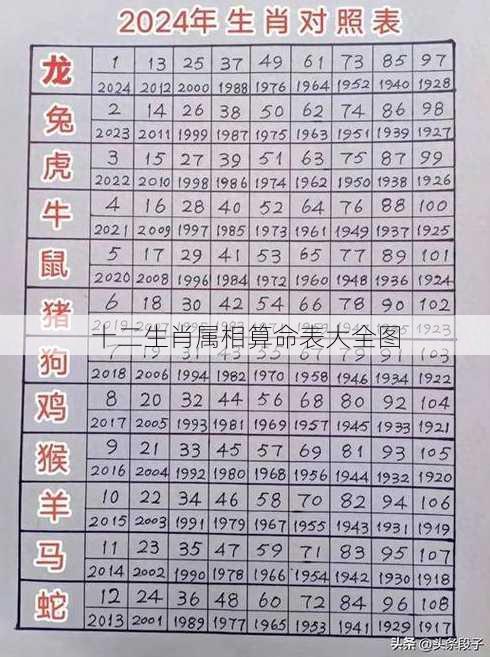 2024年生肖对照表
龙 1 13 25 37 49 61 73 85 97
2024 2012 2000 1988 1976 1964 1952 1940 1928
兔 2 14 26 38 50 62 74 86 98
2023 2011 1999 1987 1975 1963 1951 1939 1927
虎 3 15 27 39 51 63 75 87 99
2022 2010 1998 1986 1974 1962 1950 1938 1926
牛 4 16 28 40 52 64 76 88 100
2021 2009 1997 1985 1973 1961 1949 1937 1925
鼠 5 17 29 41 53 65 77 89 101
2020 2008 1996 1984 1972 1960 1948 1936 1924
猪 6 18 30 42 54 66 78 90 102
1923
十二生肖属相算命表大全图
狗 103
2018 2006 1994 1982 1970 1958 1946 1934 1922
鸡 8 20 32 44 56 68 80 92 104
2017 2005 1993 1981 1969 1957 1945 1933 1921
猴 9 21 33 45 57 69 81 93 105
2016 2004 1992 1980 1968 1956 1944 1932 1920
羊 10 22 34 46 58 70 82 94 106
2015 2003 1991 1979 1967 1955 1943 1931 1919
马 11 23 35 47 59 71 83 95 107
2014 2002 1990 1978 1966 1954 1942 1930 1918
蛇 12 24 36 48 60 72 84 96 108
2013 2001 1989 1977 1965 1953 1941 1929 1917
头条 @头条段子